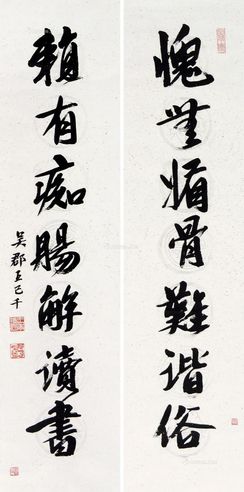 愧無媚骨難谐俗
賴有痴腸解讀書
吴郡王己千